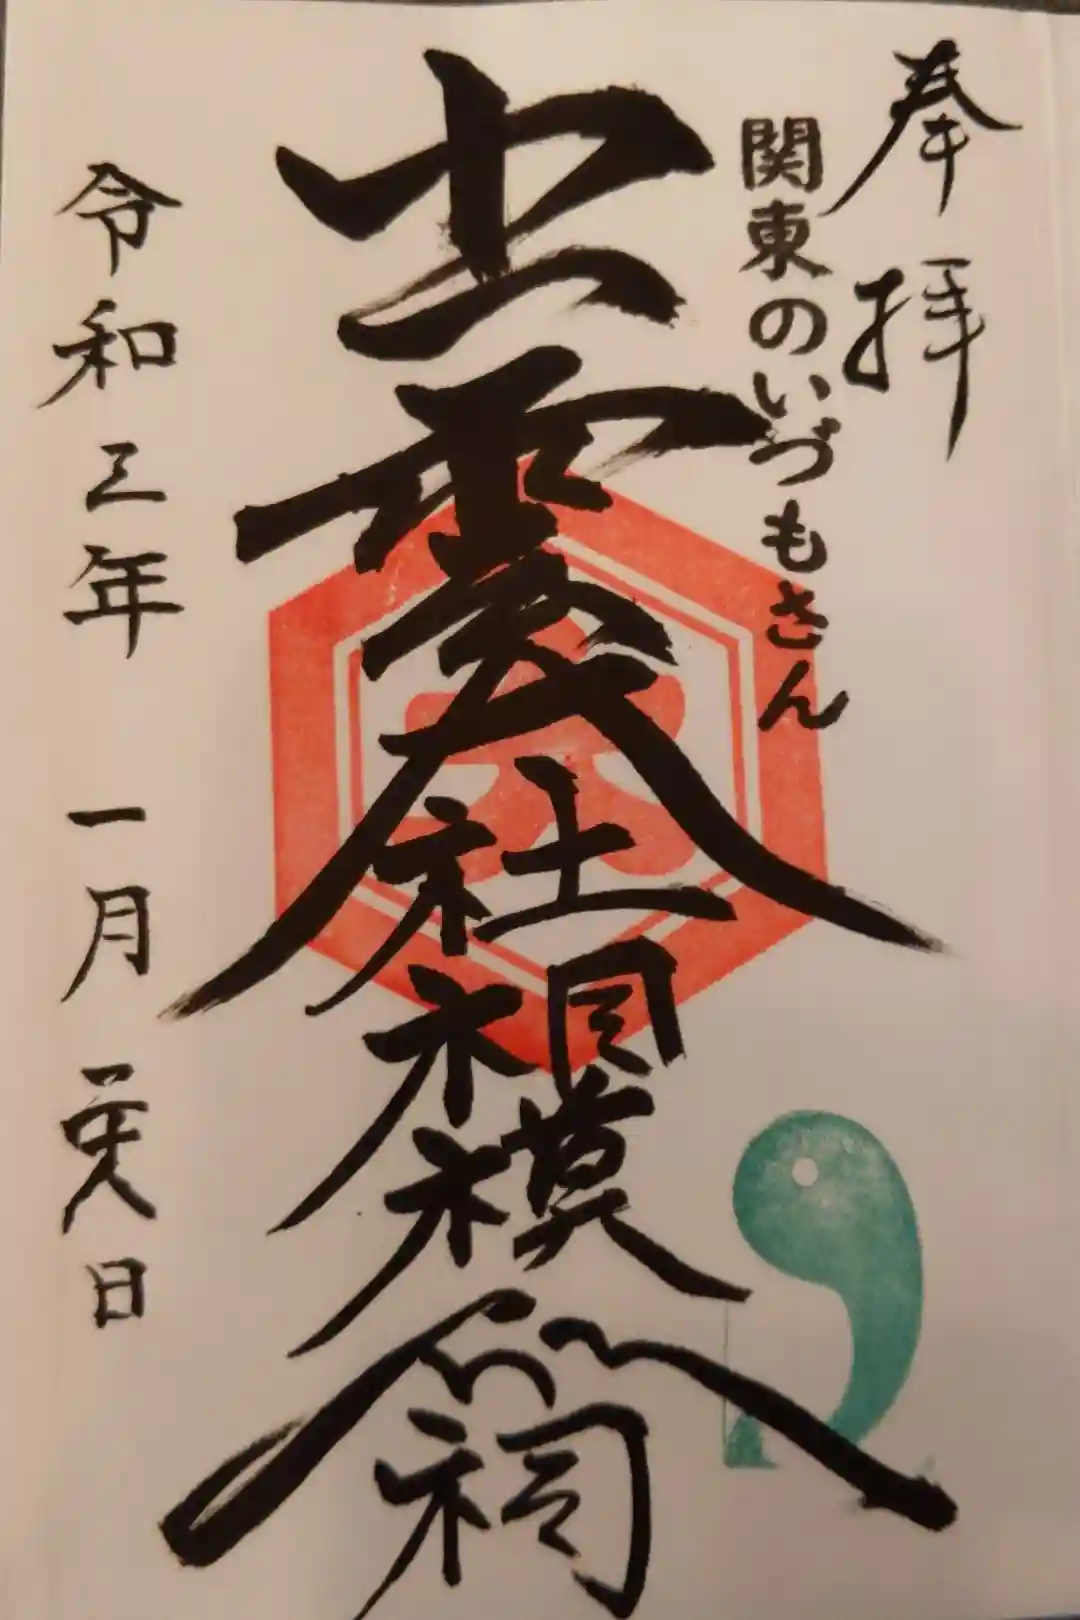 奉拝
関東のいづもさん
出雲大社相模分祠
令和三年 一月 二十八日